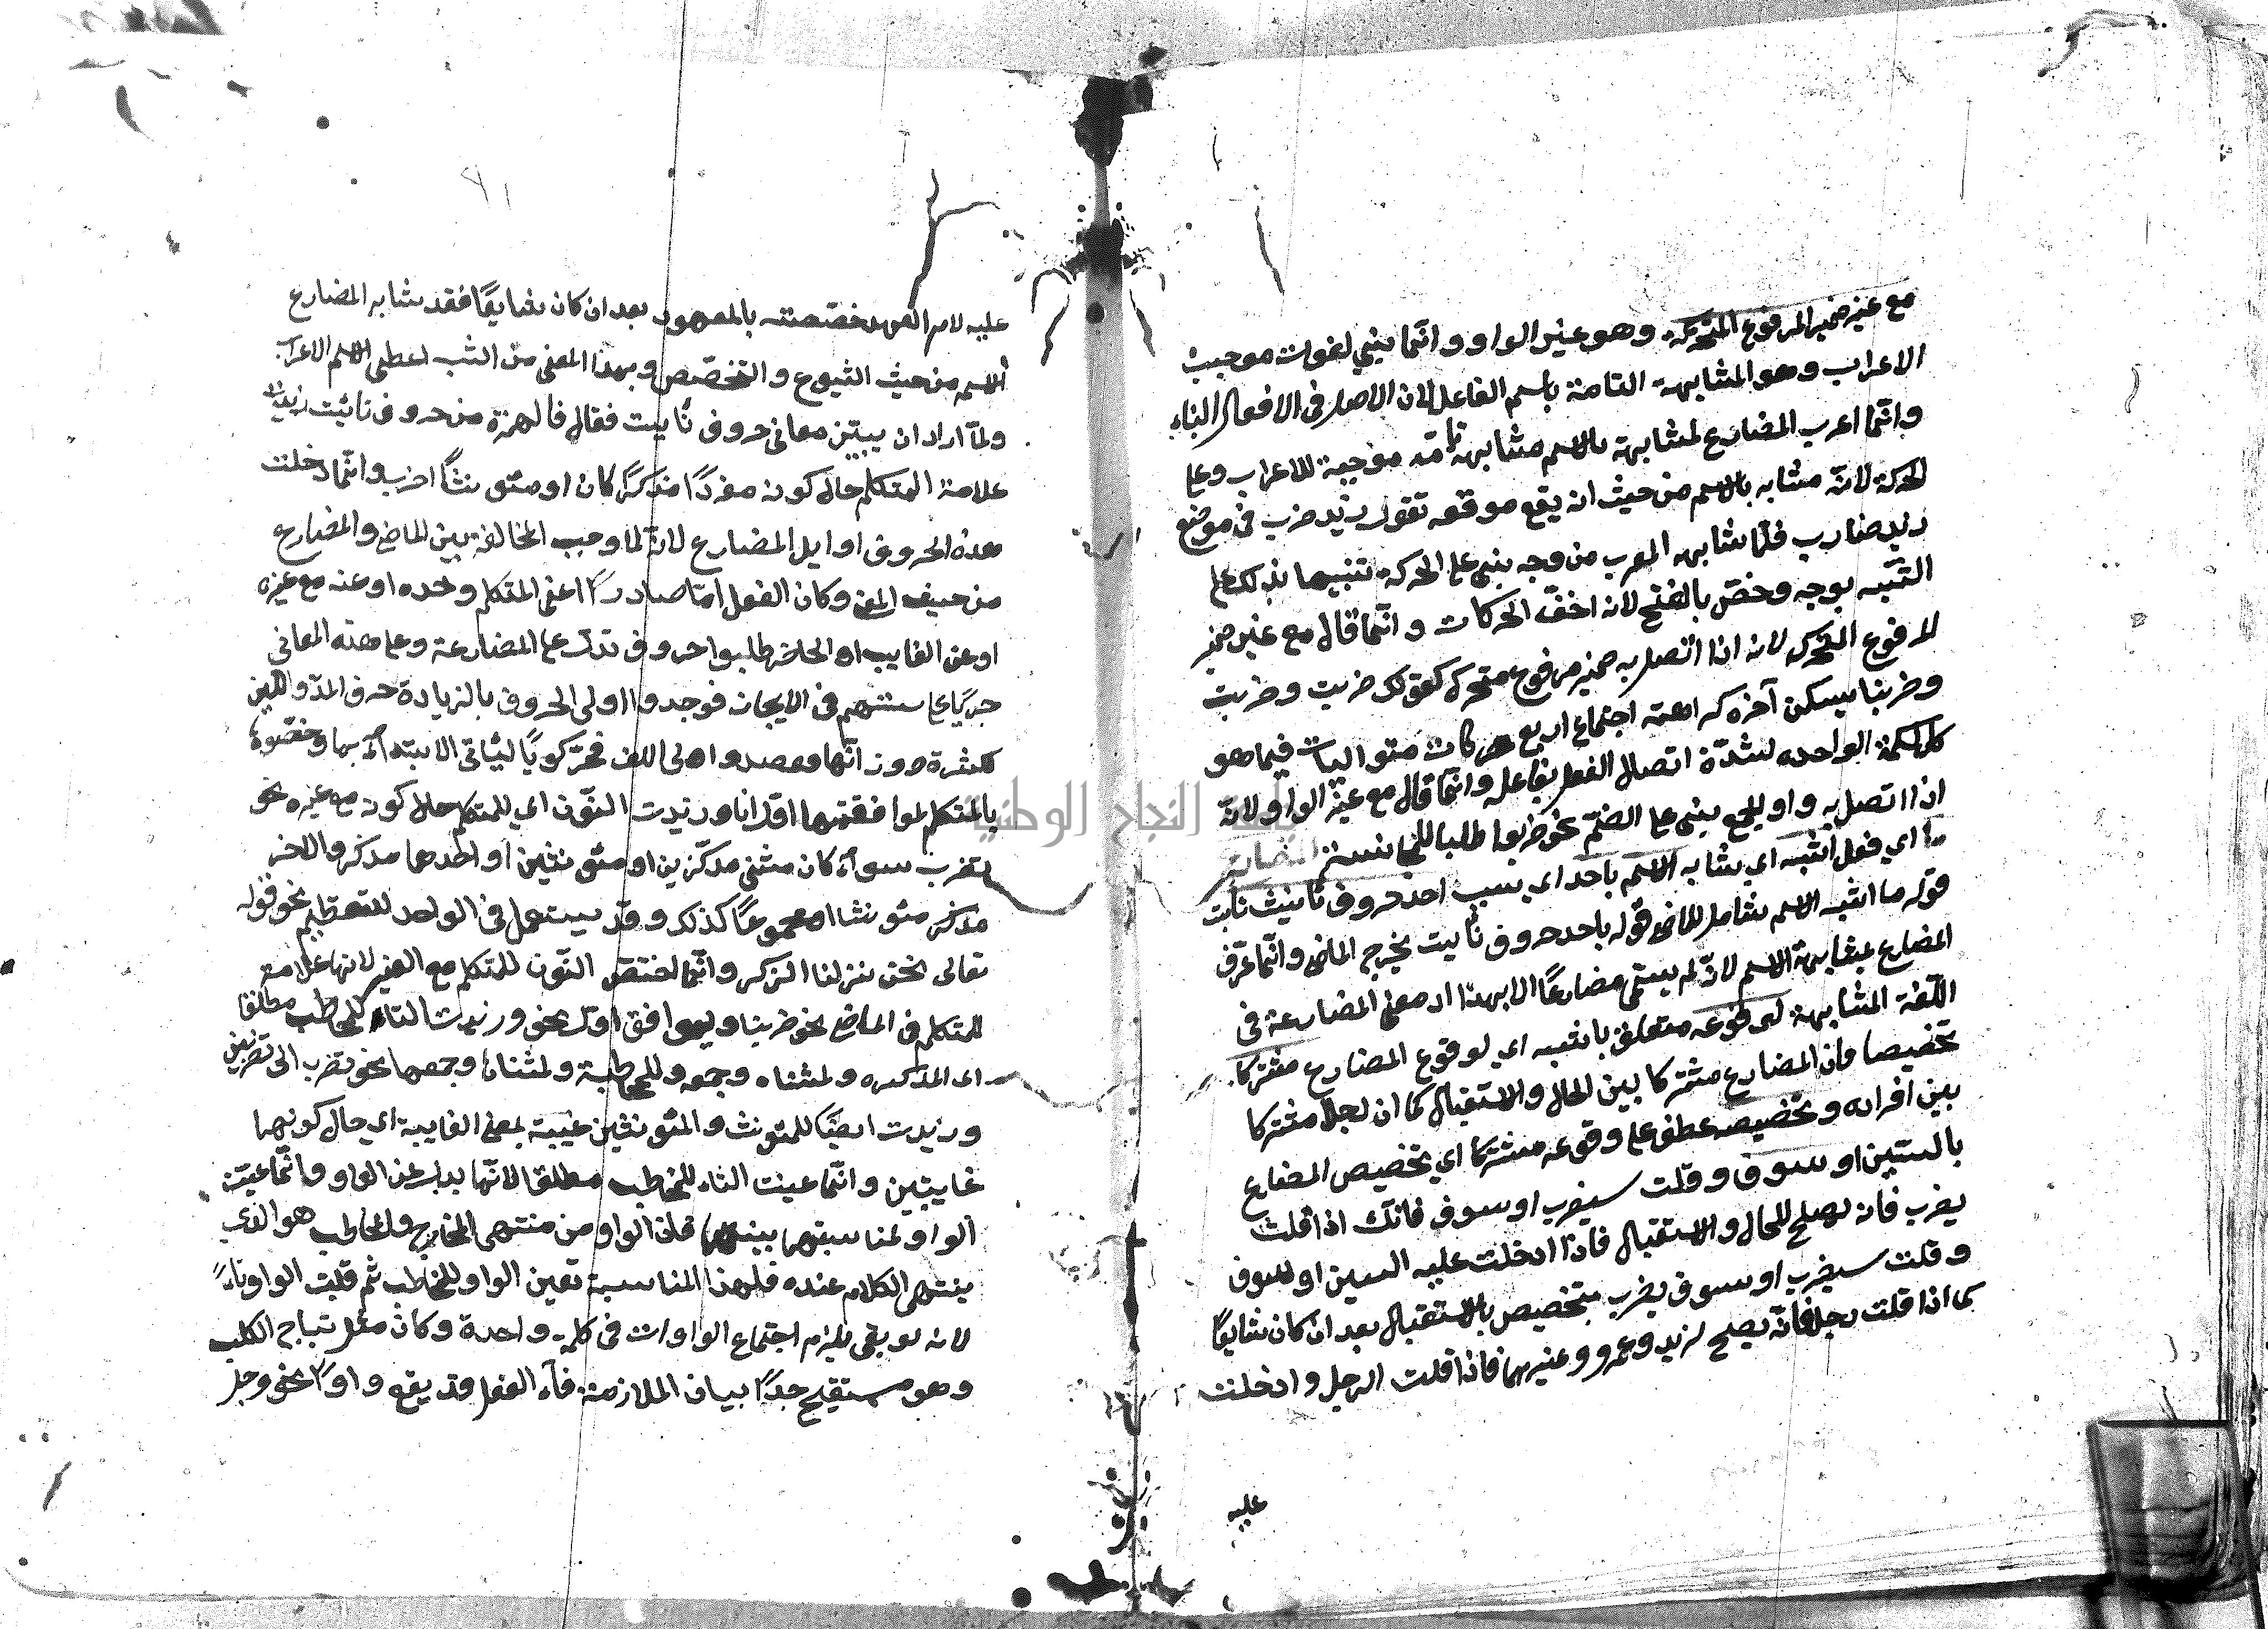 مع غير ضمير المرفوع المتحركة وهو غير الواو وانّما بني لفوات موجب
الاعراب وهو المشابهة التامة باسم الفاعل لان الاصل فى الافعال البناء
وانّما اعرب المضارع لمشابهة بالاسم مشابهة تامة موجبة للاعراب وعلى
الحركة لانّه مشابه بالاسم من حيث ان يقع موقعه تقول زيد ضرب فى موضع
زيد ضارب فلمّا شابهه المعرب من وجه بنى على الحركة تنبيها بذلك على
الشبه بوجه وخصّ بالفتح لانه اخفّ الحركات وانّما قال مع غير ضمير
المرفوع المتحرك لانه اذا اتصل به ضمير مرفوع متحرك كقولك ضربت وضربت
وضربنا يسكن آخره كراهة اجتماع اربع حركات متواليات فيما هو
كالكلمة الواحده لشدّة اتصال الفعل بفاعله وانّما قال مع غير الواو لانّه
اذا اتصل به واو الجمع يبنى على الضمّ نحو ضربوا طلبا للتجانس المضارع
ما اي فعل اشبه اي يشابه الاسم باحد اي بسبب احد حروف تأنيث نأيت
قوله ما اشبه الاسم شامل للماضى قوله باحد حروف نأيت يخرج الماضى وانّما عرّف
المضارع بمشابهة الاسم لانّه لم يسمّى مضارعًا الا بهذا اذ معنى المضارعة فى
اللّغة المشابهة لوقوعه متعلق باشبه اي لوقوع المضارع مشتركا
تخصيصا فان المضارع مشتركا بين الحال والاستقبال كما ان رجلا مشتركا
بين افراده وتخصيصه عطف على وقوعه مشتركا اي تخصيص المضارع
بالسّين او سوف وقلت سيضرب او سوف فانّك اذا قلت
يضرب فانه يصلح للحال والاستقبال فاذا ادخلت عليه السين او سوف
وقلت سيضرب او سوف يضرب يتخصيص بالاستقبال بعد ان كان شايعًا
كما اذا قلت رجل فانّه يصلح لزيد وعمرو وغيرهما فاذا قلت الرجل وادخلت
عليه
٩١
عليه لام العهد خصّصته بالمعهود بعد ان كان شايعًا فقد شابه المضارع
الاسم من حيث الشيوع والتخصّيص وبهذا المعنى من الشبه اعطى الاسم الاعراب
ولمّا اراد ان يبيّن معانى حروف نأيت فقال فالهمزة من حروف نأيت زيدت
علامة المتكلم حال كونه مفردًا مذكرًا كان او مئونثًا اضرب وانّما دخلت
هذه الحروف اوايل المضارع لانّه لما وجب المخالفة بين الماضى والمضارع
من حيث المعنى وكان الفعل امّا صادرًا اعنى المتكلم وحده او عنه مع غيره
او عن الغايب او الحاضر طلبوا حروف تدل على المضارعة وعلى هذه المعانى
جريًا على سننهم فى الايجاز فوجدوا اولى الحروف بالزيادة حرف المدّ واللين
لكثرة دورانّها وقصدوا اولى الالف فحرّكوها ليئاتى الابتداء بها وخصّوها
بالمتكلم لموافقتها اوّل انا وزيدت النّون اي للمتكلم حال كونه مع غيره نحو
نضرب سواء كان مثنى مذكّرين او مئونثين او احدهما مذكر والاخر
مذكر مئونثا او مجموعًا كذلك وقد يستعمل فى الواحد للتعظيم نحو قوله
تعالى نحن نزلنا الذكر وانّما اختصّ النّون للمتكلم مع الغير لانها علم مع
المتكلم فى الماضى نحو ضربنا وليوافق اوّل نحن وزيدت التاء للمخاطب مطلقا
اى المذكره ولمثناه وجمعه وللمخاطبة ولمثناها وجمعها نحو تضرب الى تضربين
وزيدت ايضًا للمئونث والمئونثين غيبة بمعنى الغايبة اي حال كونهما
غايبتين وانّما عينت التاء للمخاطب مطلقا لانّها بدل عن الواو وانّما عيّنت
الواو لمناسبتها بينهما فلان الواو من منتهى المخارج والمخاطب هو الذي
ينتهى الكلام عنده فلهذا المناسبة تعين الواو للمخاطب ثم قلبت الواو تاءً
لانه لو بقى يلزم اجتماع الواوات فى كلمة واحدة وكان مثل نباح الكلب
وهو مستقبح جدّا بيان الملازمة فآء الفعل قد يقع واوًا نحو وجل
جامعة النجاح الوطنية